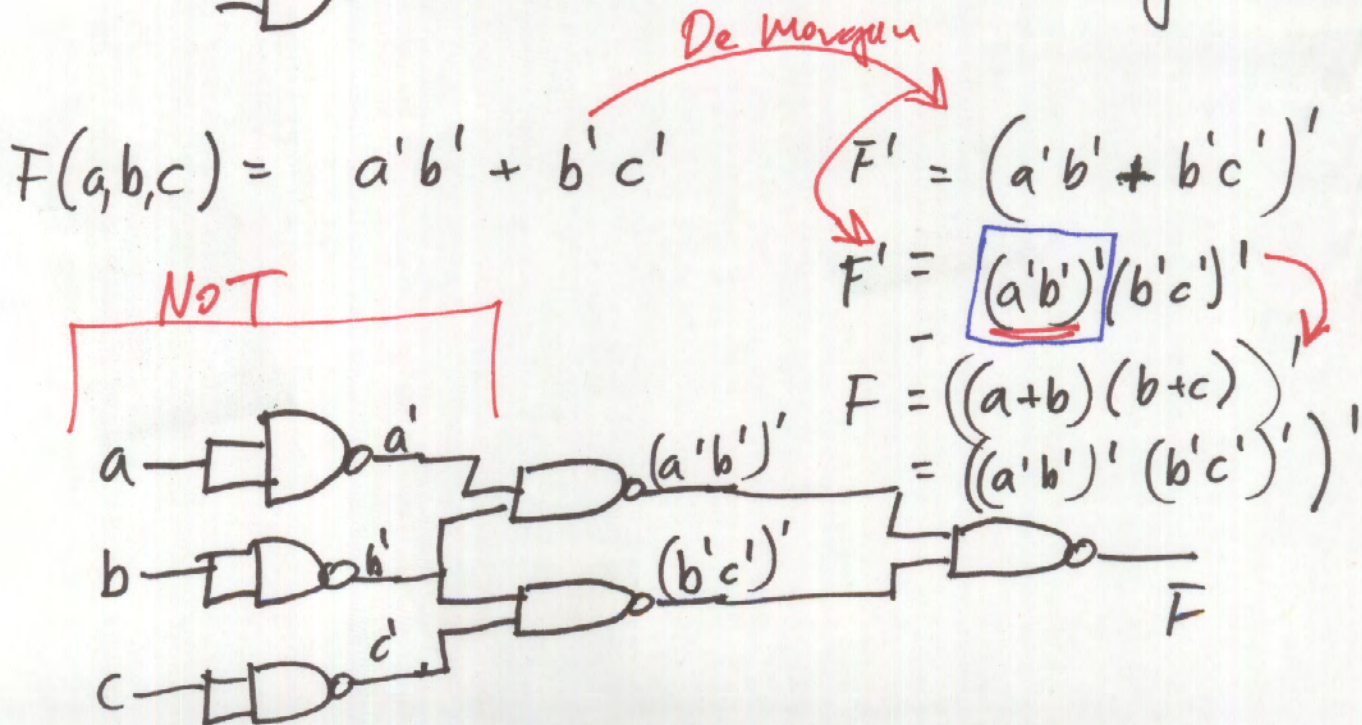 De Morgan
F(a,b,c) = a'b' + b'c'
F' = (a'b' + b'c')'
F' = (a'b')'(b'c')'
NOT
F = ((a+b)(b+c))'
= ((a'b')' (b'c')')'
a
a'
(a'b')'
b
b'
(b'c')'
F
c
c'